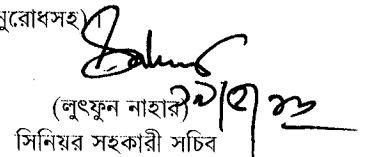 নুরোধসহ)।
(লুৎফুন নাহার)
সিনিয়র সহকারী সচিব